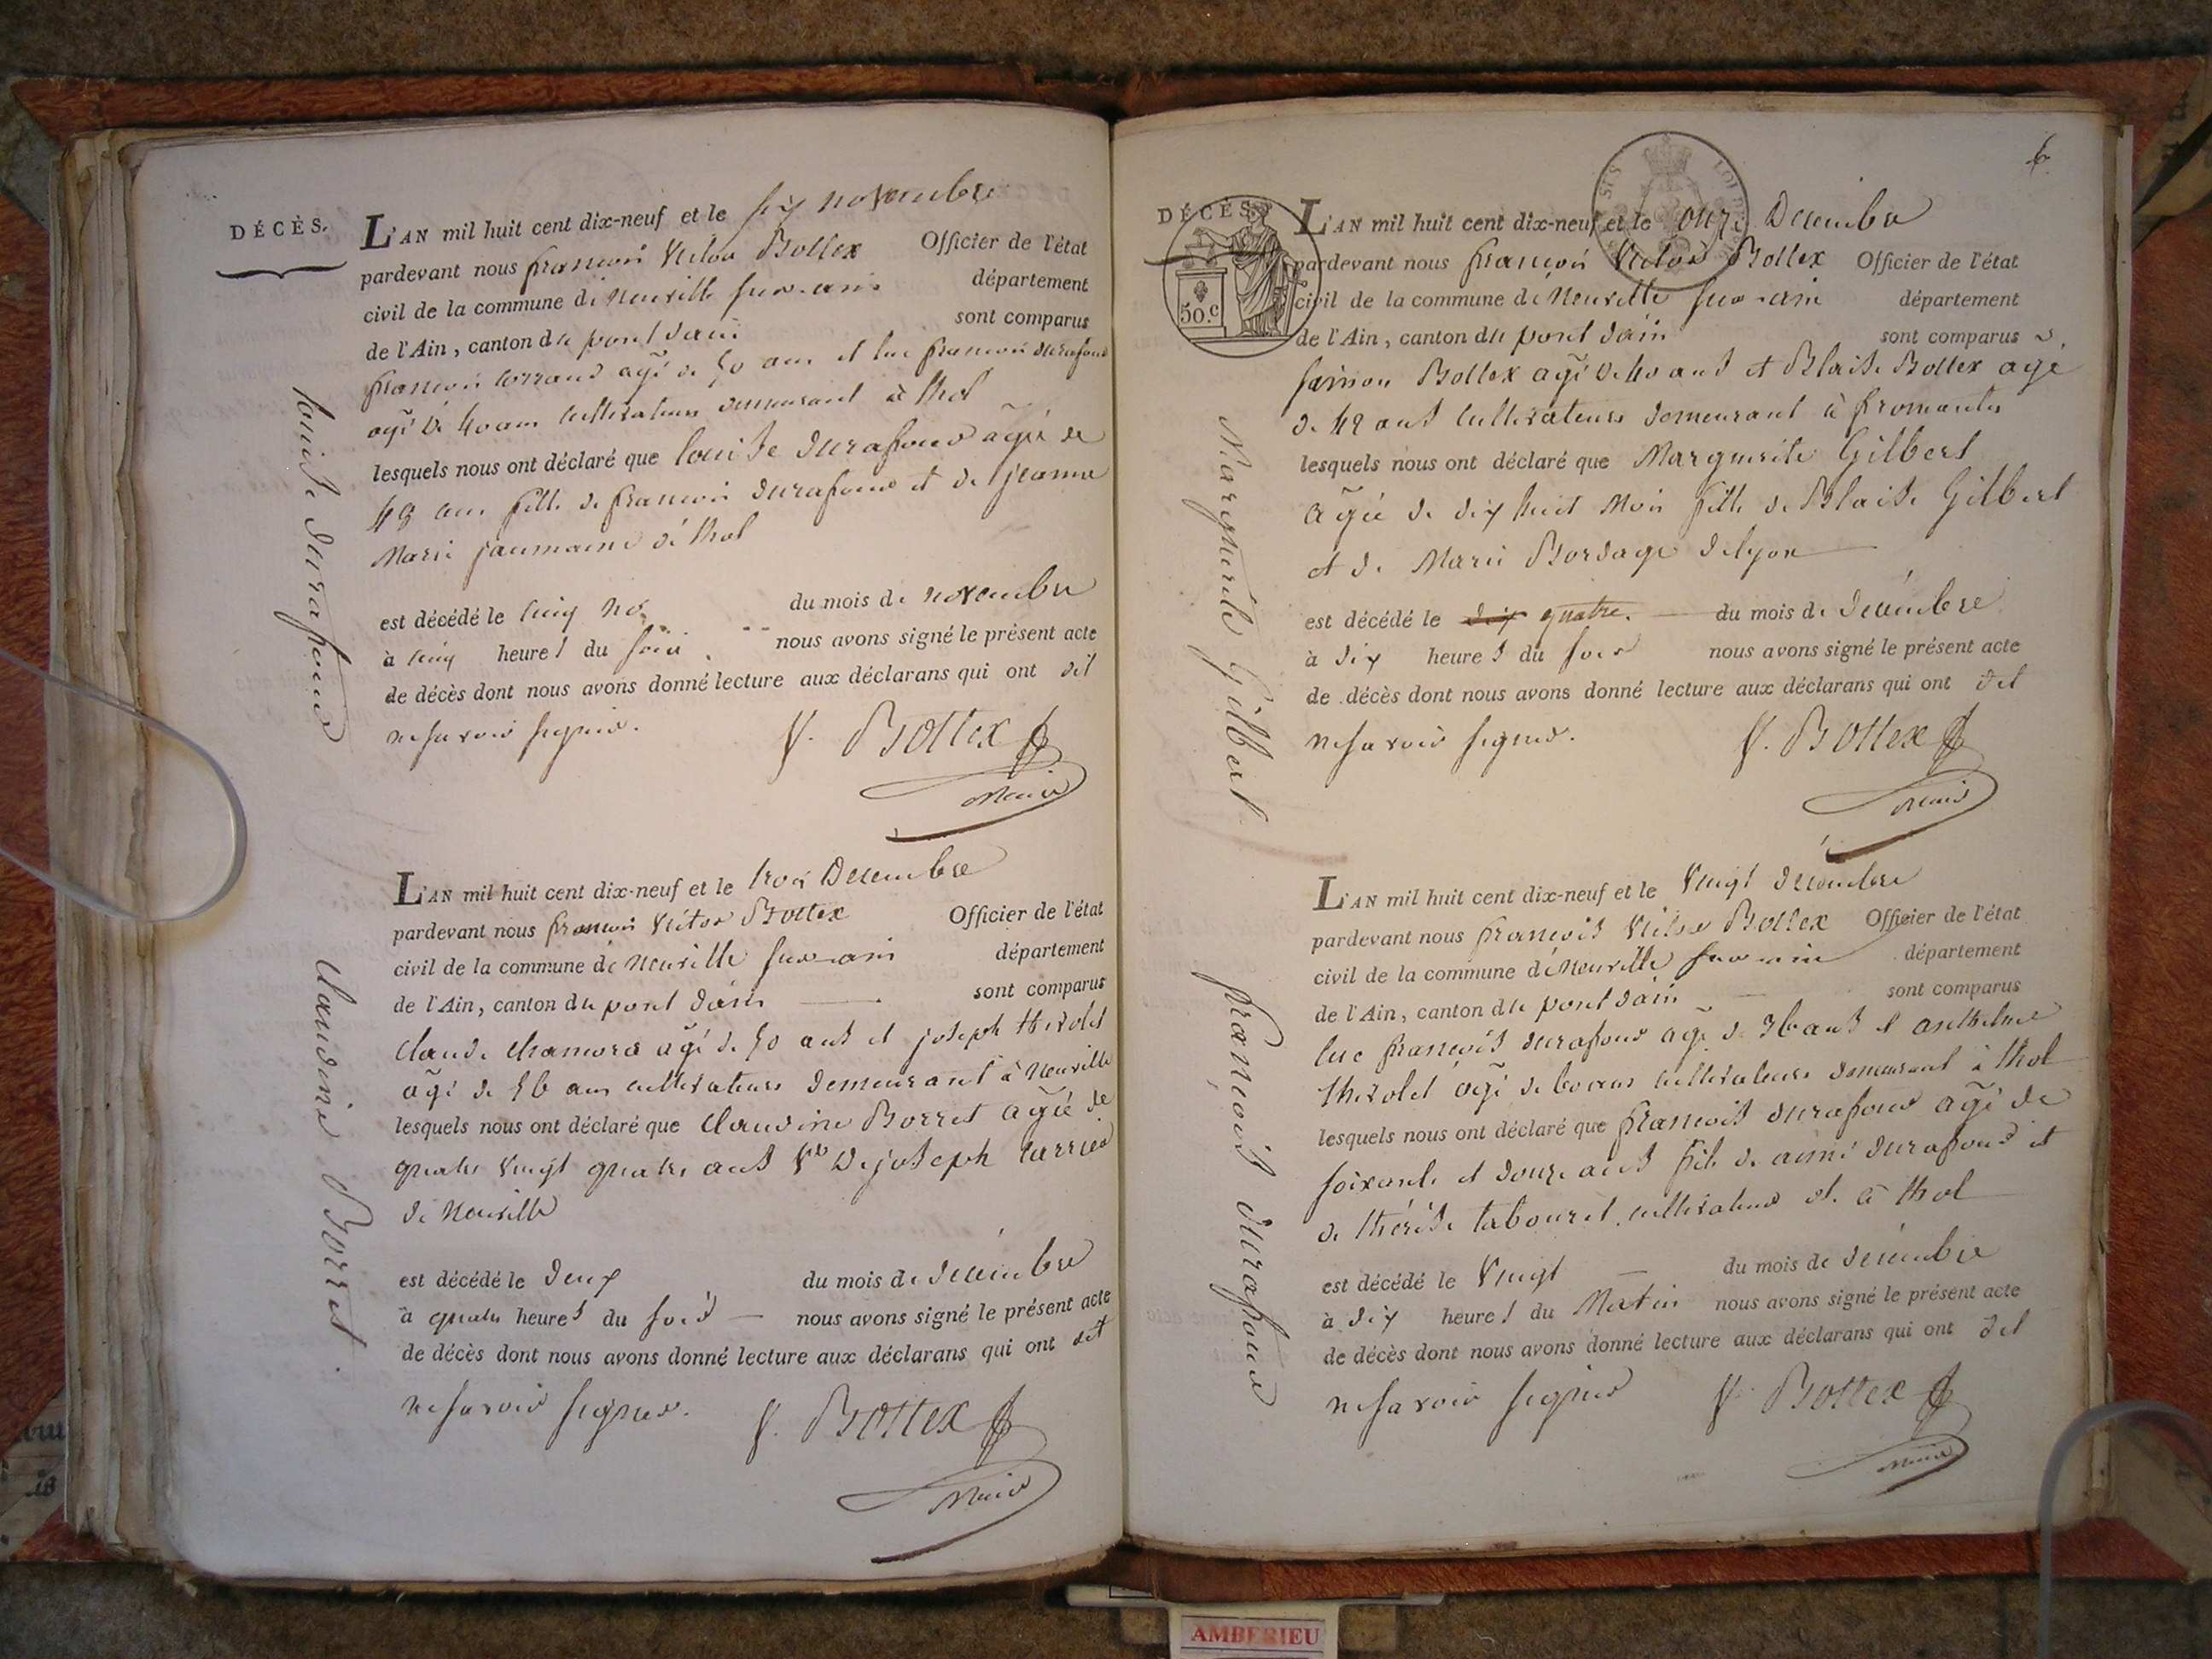 DÉCÈS.
L'AN mil huit cent dix-neuf et le six novembre
pardevant nous françois Victor Bottex Officier de l'état
civil de la commune de Neuville sur-ain département
de l'Ain, canton du pont dain sont comparus
françois Corraud agé de 50 ans et luc françois durafour
agé de 40 ans cultivateurs demeurant à thol
lesquels nous ont déclaré que louise durafour agée de
48 ans fille de françois durafour et de jeanne
Marie jaumaine de thol
est décédé le cinq no du mois de novembre
à cinq heures du soir nous avons signé le présent acte
de décès dont nous avons donné lecture aux déclarans qui ont dit
ne savoir signer. V. Bottex
Maire
louise durafour
L'AN mil huit cent dix-neuf et le trois Decembre
pardevant nous françois Victor Bottex Officier de l'état
civil de la commune de Neuville sur-ain département
de l'Ain, canton du pont dain sont comparus
Claude Chamora agé de 50 ans et joseph thevolet
agé de 56 ans cultivateurs demeurant à Neuville
lesquels nous ont déclaré que Claudine Borret agée de
quatre vingt quatre ans Ve De joseph Carrier
de Neuville
est décédé le deux du mois de decembre
à quatre heures du soir nous avons signé le présent acte
de décès dont nous avons donné lecture aux déclarans qui ont dit
ne savoir signer. V. Bottex
Maire
Claudine Borret.
6
DÉCÈS.
50.c
L'AN mil huit cent dix-neuf et le onze Decembre
pardevant nous françois Victor Bottex Officier de l'état
civil de la commune de Neuville sur-ain département
de l'Ain, canton du pont dain sont comparus
simon Bottex agé de 40 ans et Blaise Bottex agé
de 42 ans cultivateurs demeurant à fromentes
lesquels nous ont déclaré que Marguerite Gilbert
agée de dix huit Mois fille de Blaise Gilbert
et de Marie Bordage de lyon
est décédé le dix quatre. du mois de decembre
à dix heures du soir nous avons signé le présent acte
de décès dont nous avons donné lecture aux déclarans qui ont dit
ne savoir signer. V. Bottex
Maire
Marguerite Gilbert
L'AN mil huit cent dix-neuf et le Vingt decembre
pardevant nous françois Victor Bottex Officier de l'état
civil de la commune de Neuville sur-ain département
de l'Ain, canton du pont dain sont comparus
luc françois durafour agé de 36 ans et anthelme
thevolet agé de 60 ans cultivateurs demeurant à thol
lesquels nous ont déclaré que françois durafour agé de
soixante et douze ans fils de aimé durafour et
de thérèse tabouret cultivateur dt. à thol
est décédé le Vingt du mois de decembre
à dix heures du Matin nous avons signé le présent acte
de décès dont nous avons donné lecture aux déclarans qui ont dit
ne savoir signer V. Bottex
Maire
françois durafour
AMBERIEU